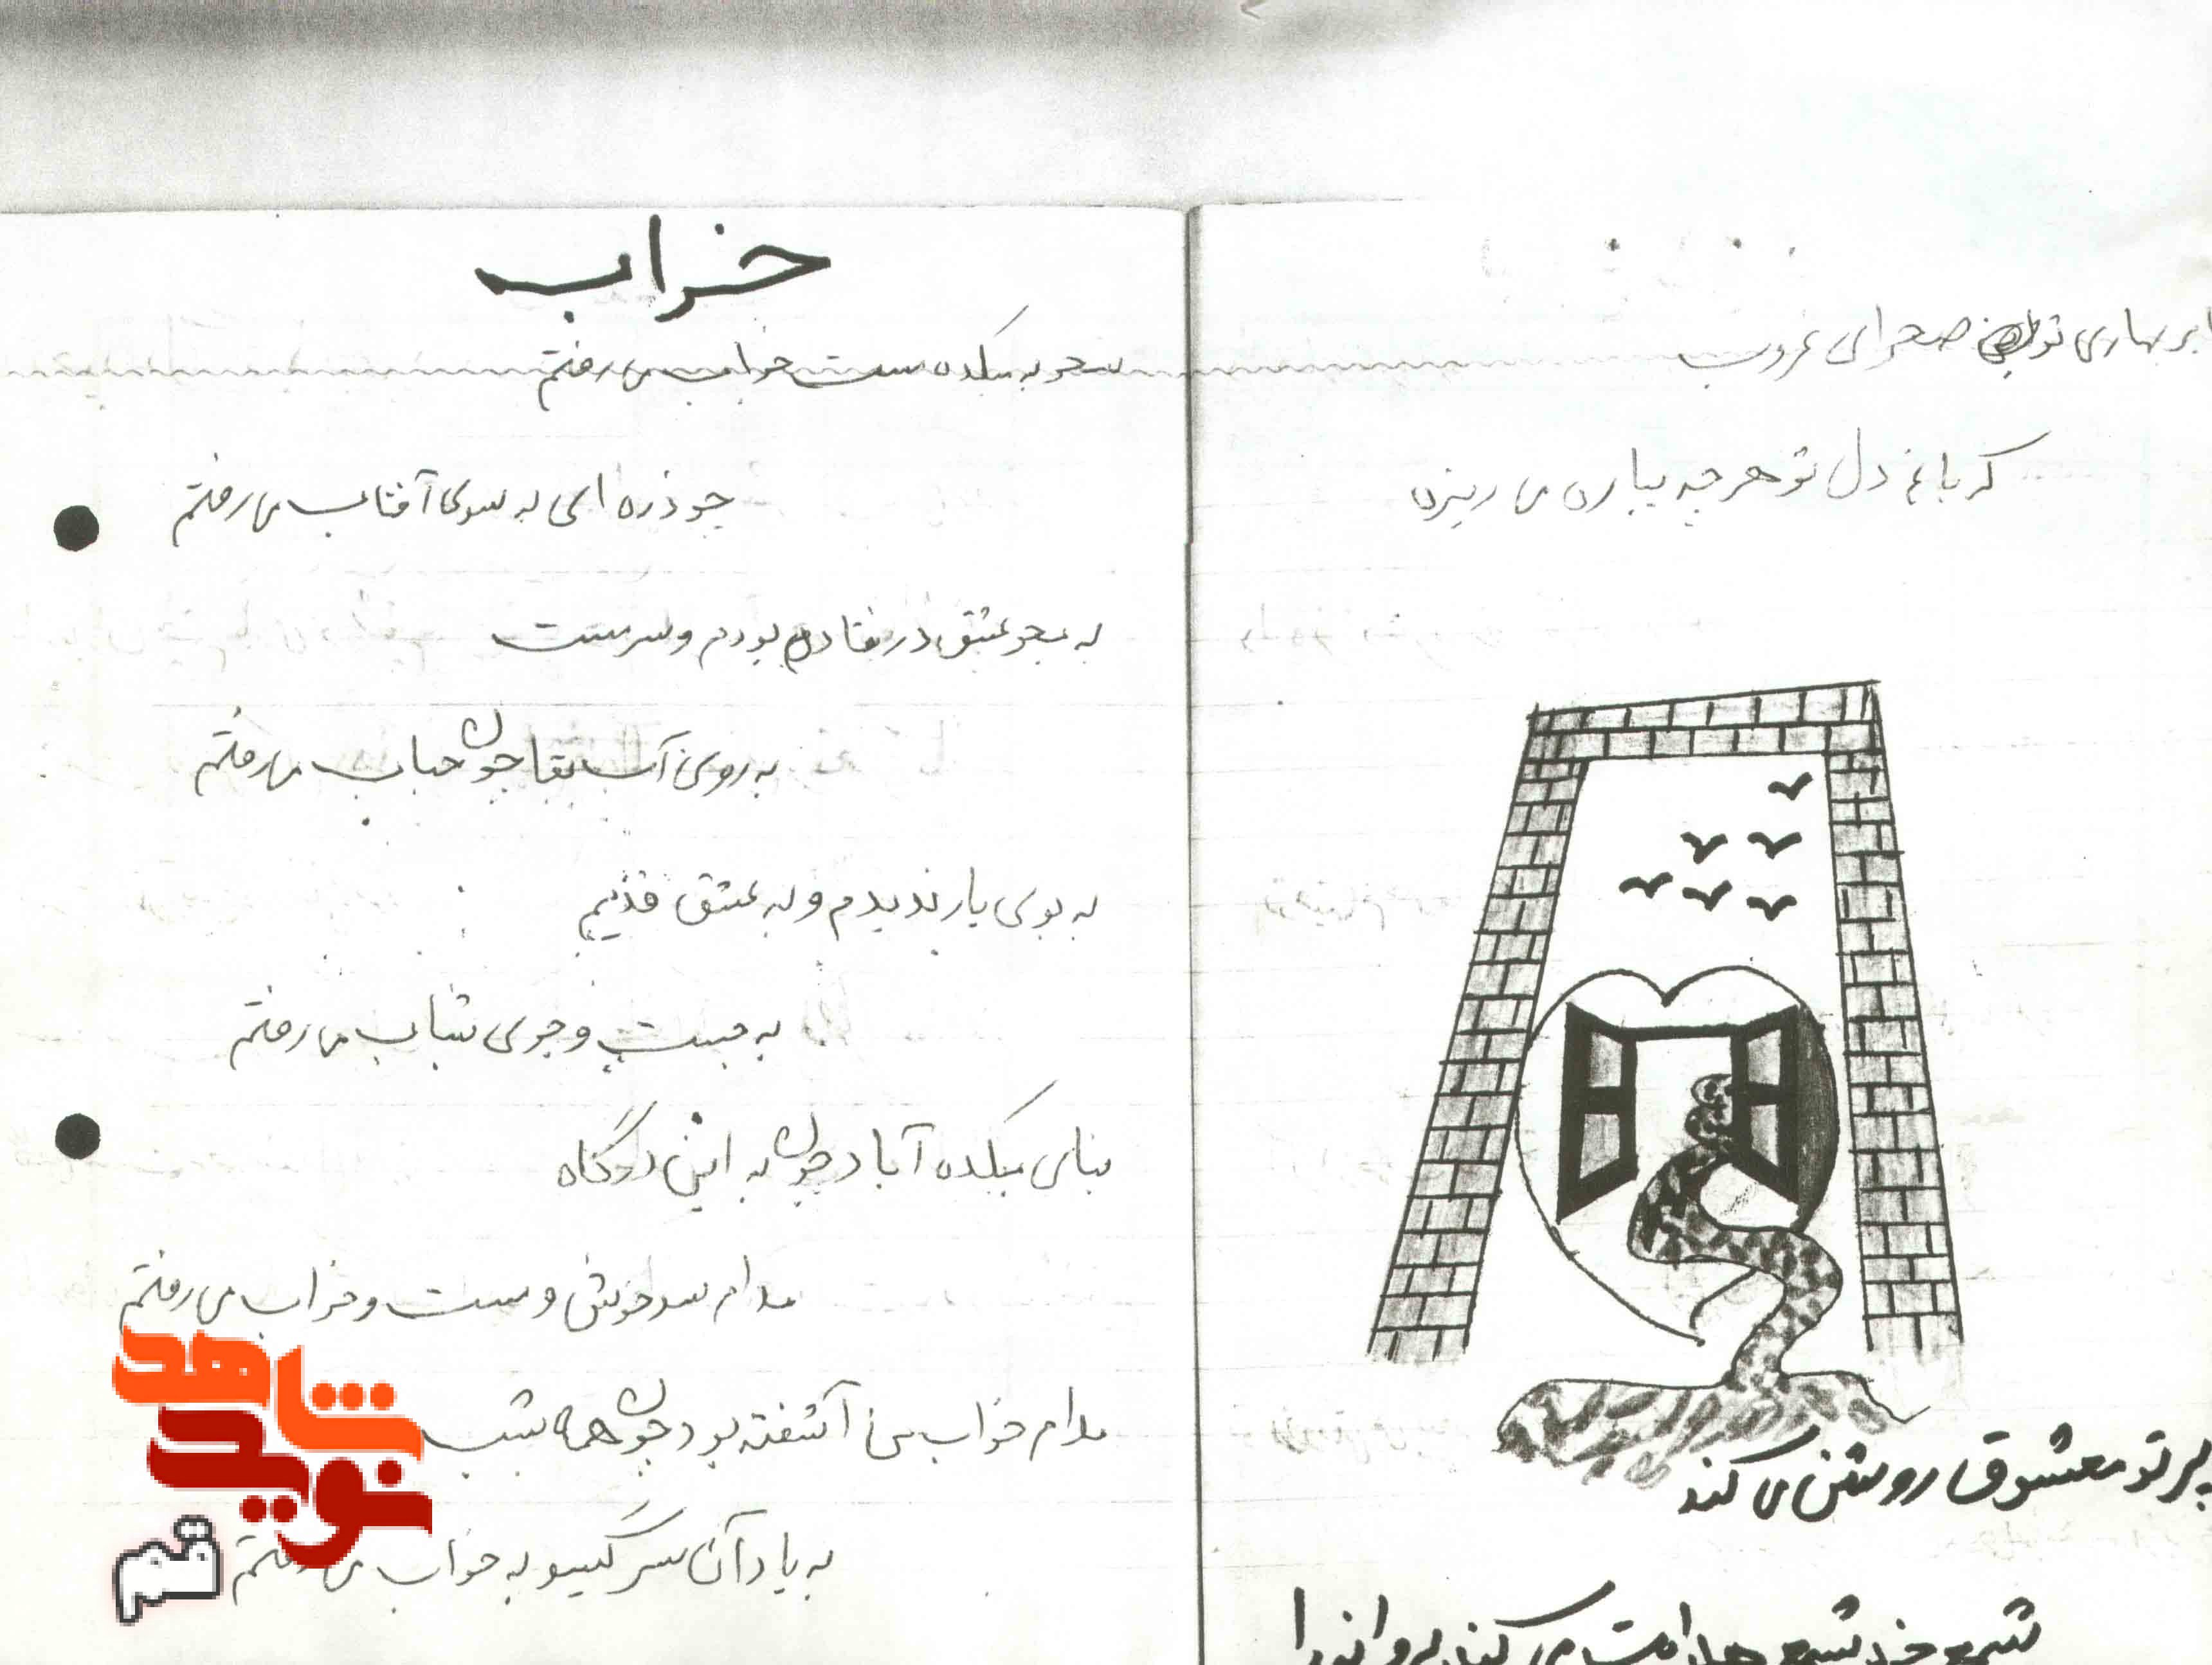 ابر بهاری تو صحرای غروب
که باغ دل تو هر چه بباری می ریزد
پرتو معشوق روشن می کند
شمع خود شمع هدایت می کند پروانه را
خراب
سحر به میکده مست خراب می رفتم
چو ذره ای به سوی آفتاب می رفتم
به بحر عشق در فتاده بودم و سرمست
به روی آب بقا چون حباب می رفتم
به بوی یار ندیدم و به عشق قدیم
به جست و جوی شباب می رفتم
بنای میکده آباد چون به این درگاه
مدام سرخوش و مست و خراب می رفتم
مدام خواب من آشفته بود چون همه شب
به یاد آن سر گیسو به خواب می رفتم
شاهد
نوید
قم